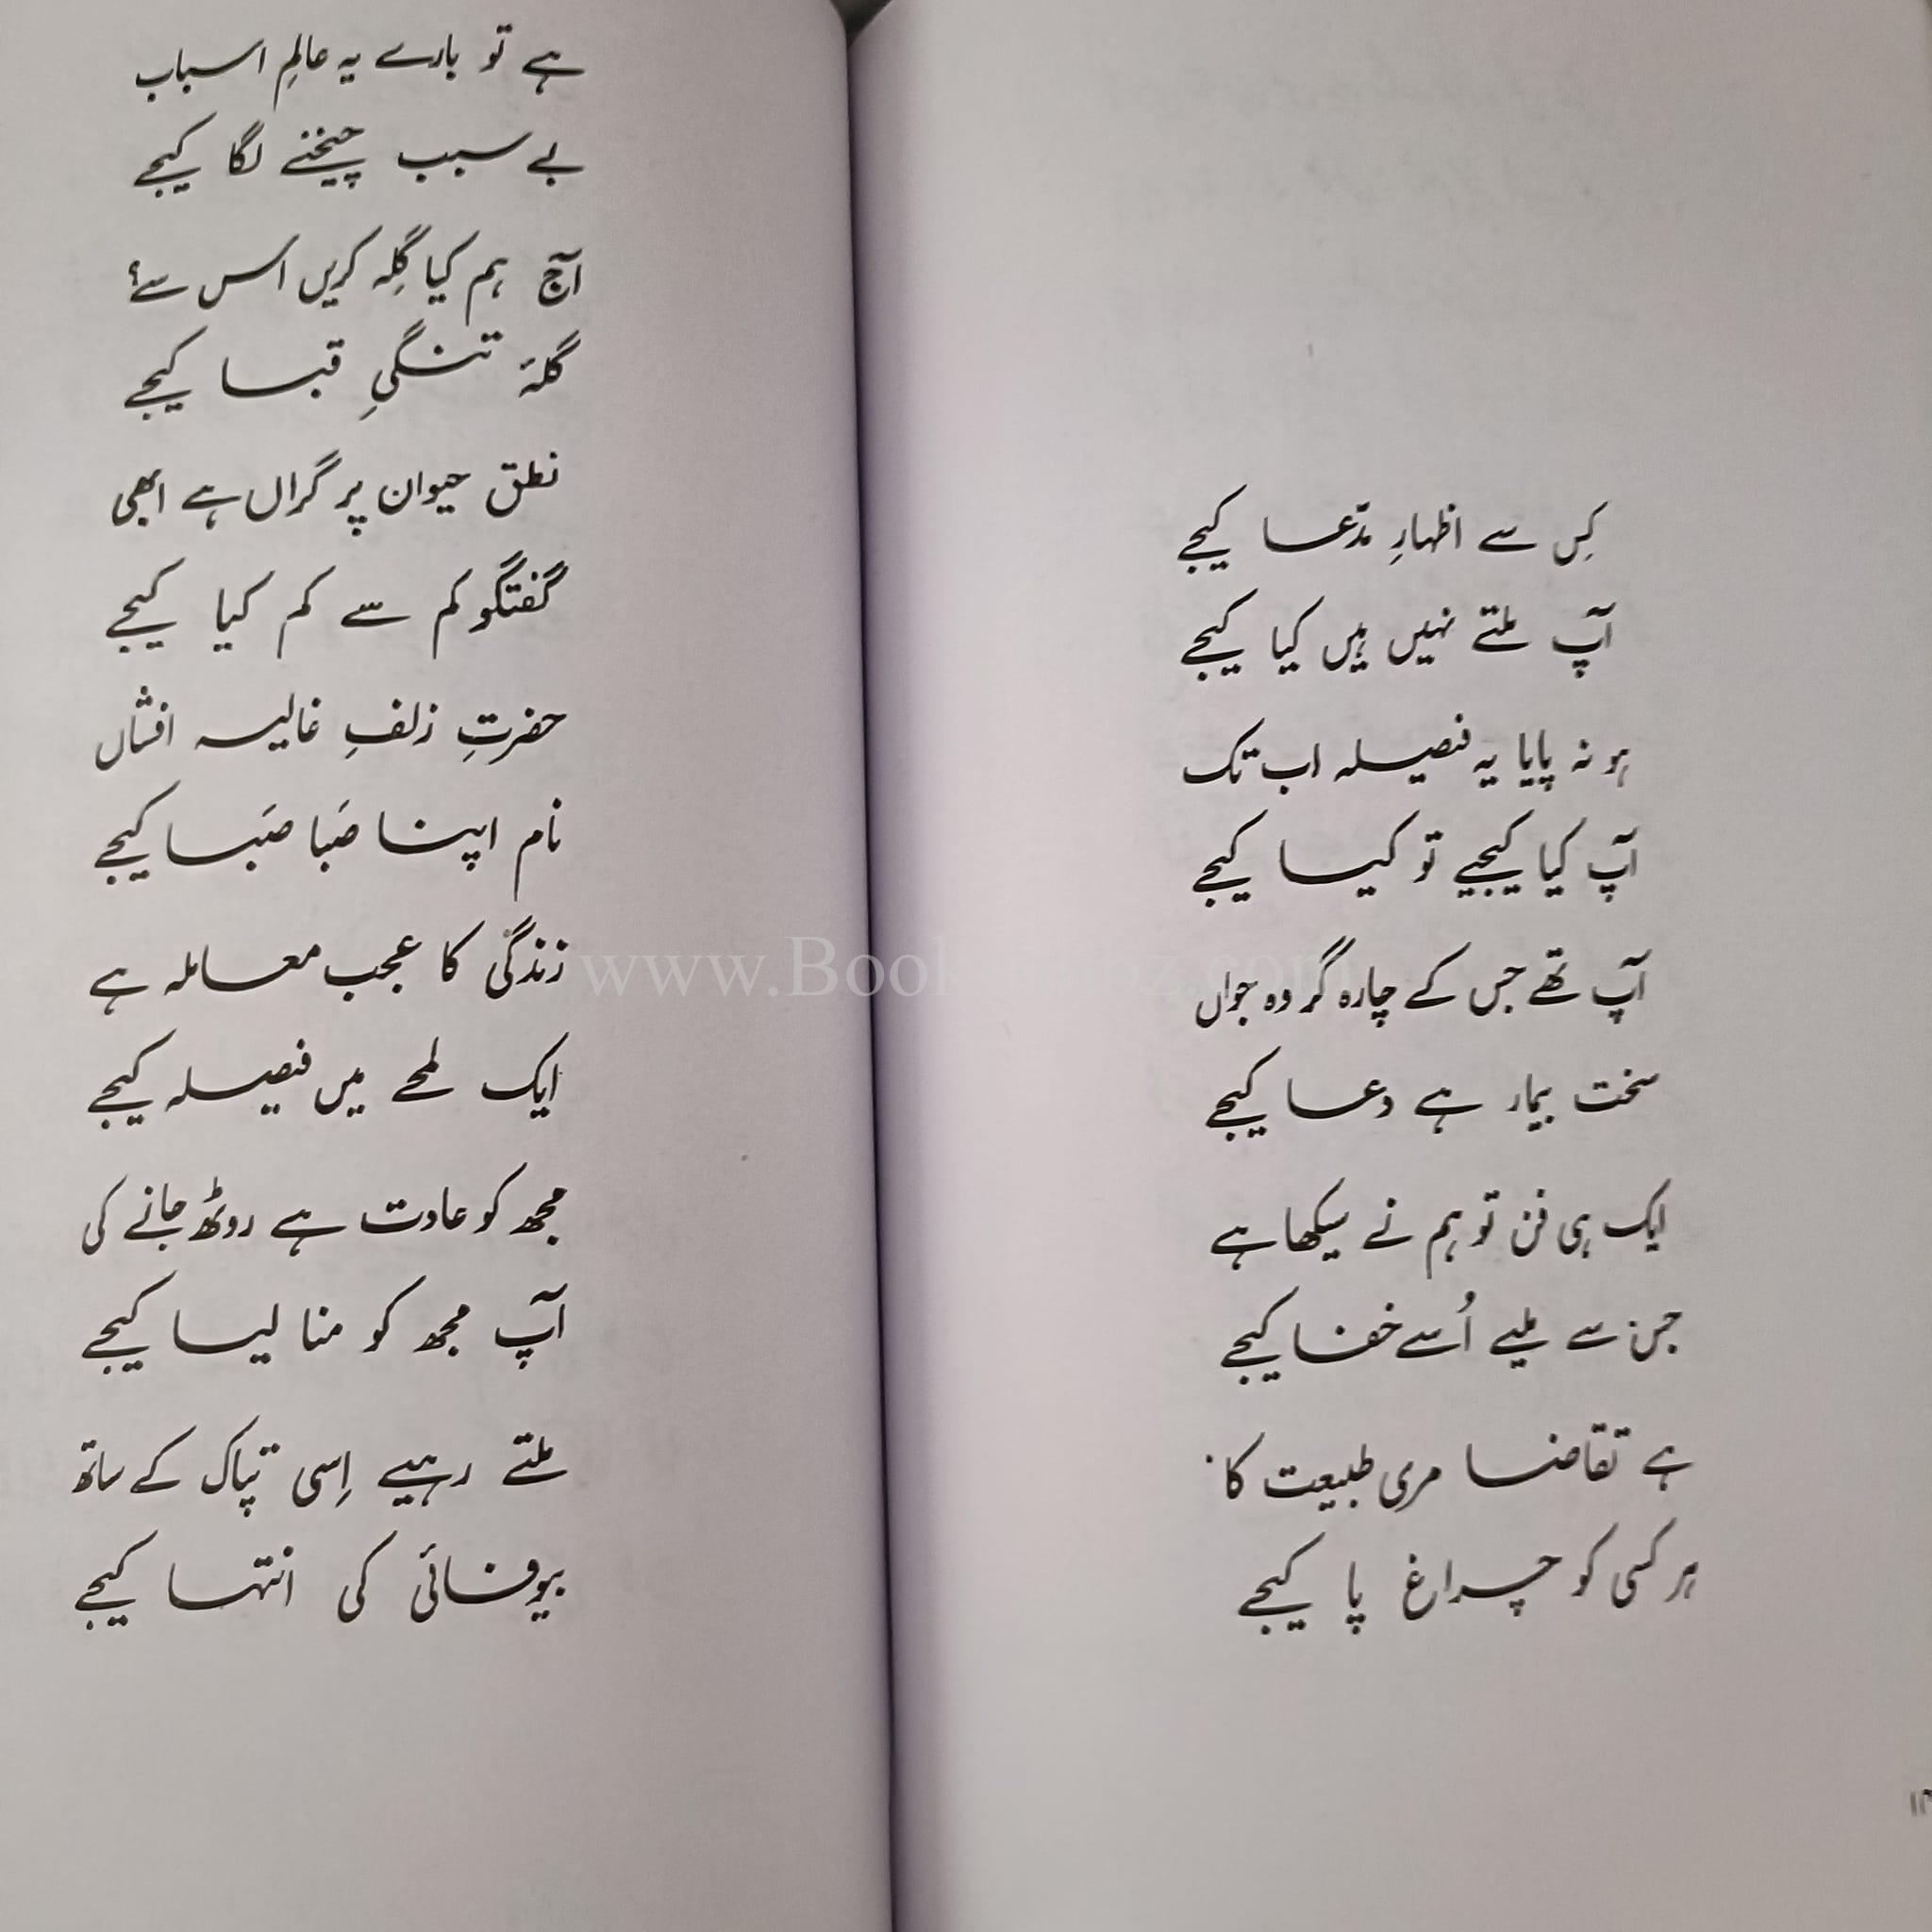 کِس سے اظہارِ مدّعا کیجے
آپ ملتے نہیں ہیں کیا کیجے
ہو نہ پایا یہ فیصلہ اب تک
آپ کیا کیجیے تو کیا کیجے
آپ تھے جس کے چارہ گر وہ جواں
سخت بیمار ہے دعا کیجے
ایک ہی فن تو ہم نے سیکھا ہے
جس سے ملیے اُسے خفا کیجے
ہے تقاضا مری طبیعت کا
ہر کسی کو چراغ پا کیجے
ہے تو بارے یہ عالمِ اسباب
بے سبب چیخنے لگا کیجے
آج ہم کیا گِلہ کریں اس سے؟
گلۂ تنگیِ قبا کیجے
نطق حیوان پر گراں ہے ابھی
گفتگو کم سے کم کیا کیجے
حضرتِ زلفِ غالیہ افشاں
نام اپنا صَبا صَبا کیجے
زندگی کا عجب معاملہ ہے
ایک لمحے میں فیصلہ کیجے
مجھ کو عادت ہے روٹھ جانے کی
آپ مجھ کو منا لیا کیجے
ملتے رہیے اِسی تپاک کے ساتھ
بیوفائی کی انتہا کیجے